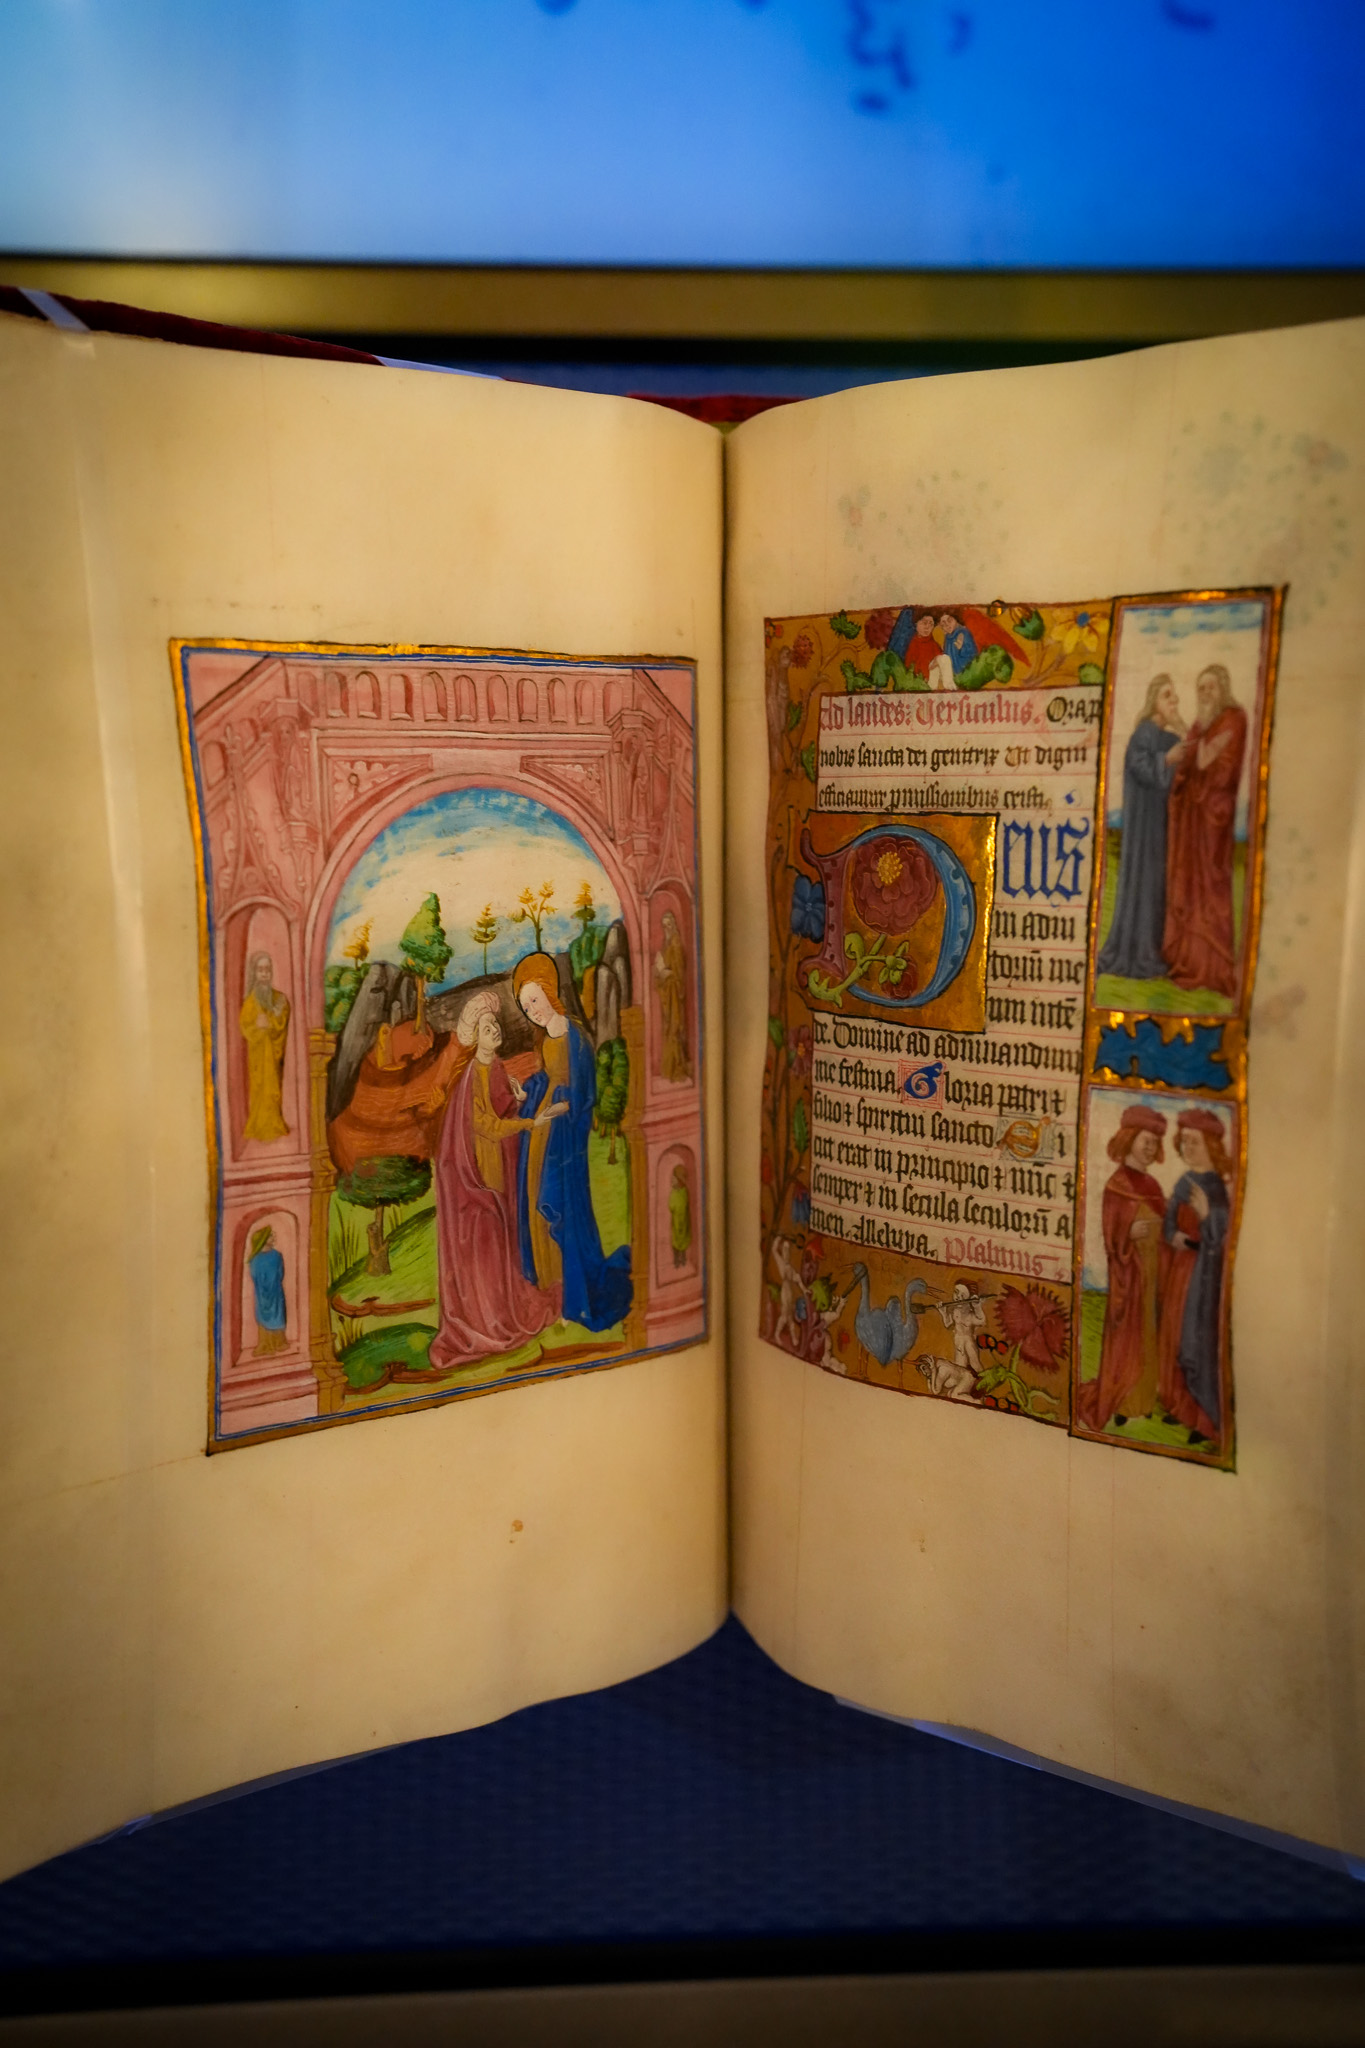 Ad laudes: Versiculus. Ora p
nobis sancta dei genitrix Ut digni
efficiamur pmissionibus cristi.
DEUS
in adiu
toriū me
um intē
de. Domine ad adiuuandum
me festina. Gloria patri ⁊
filio ⁊ spiritui sancto Si
cut erat in principio ⁊ nūc ⁊
semper ⁊ in secula seculorū a
men. Alleluya. Psalmus